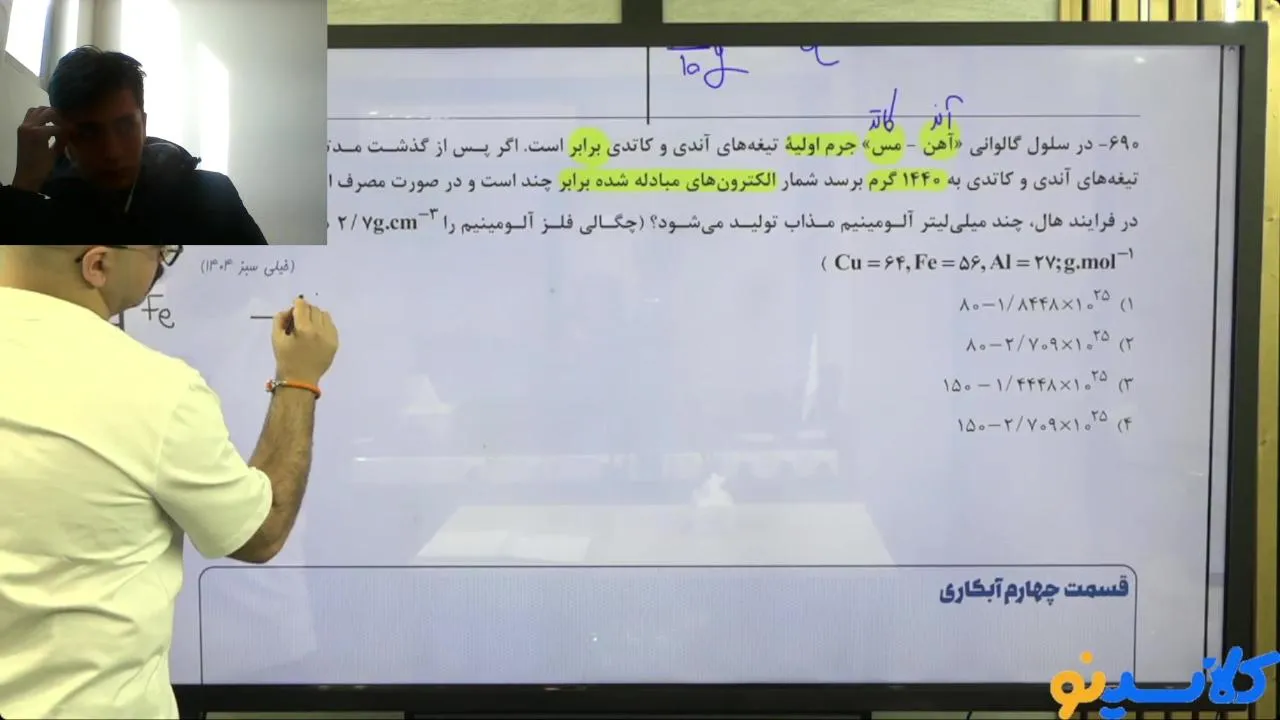 ۱۰
آند
کاتد
۶۹۰- در سلول گالوانی «آهن - مس» جرم اولیهٔ تیغه‌های آندی و کاتدی برابر است. اگر پس از گذشت
تیغه‌های آندی و کاتدی به ۱۴۴۰ گرم برسد شمار الکترون‌های مبادله شده برابر چند است و در صورت مصرف
در فرایند هال، چند میلی‌لیتر آلومینیم مذاب تولید می‌شود؟ (چگالی فلز آلومینیم را ۲/۷g.cm⁻³
Cu = ۶۴, Fe = ۵۶, Al = ۲۷; g.mol⁻¹ )
(فیلی سبز ۱۴۰۴)
Fe
۱) ۸۰-۱/۸۴۴۸×۱۰²⁵
۲) ۸۰-۲/۷۰۹×۱۰²⁵
۳) ۱۵۰-۱/۴۴۴۸×۱۰²⁵
۴) ۱۵۰-۲/۷۰۹×۱۰²⁵
قسمت چهارم آبکاری
کلاسینو